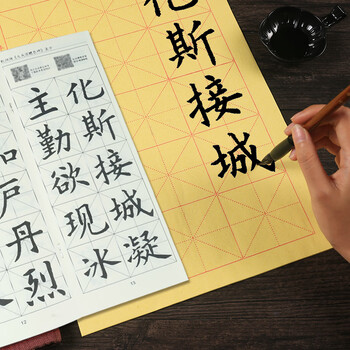 化斯接城
化斯接城凝
主勤欲现冰
户丹烈
13
12